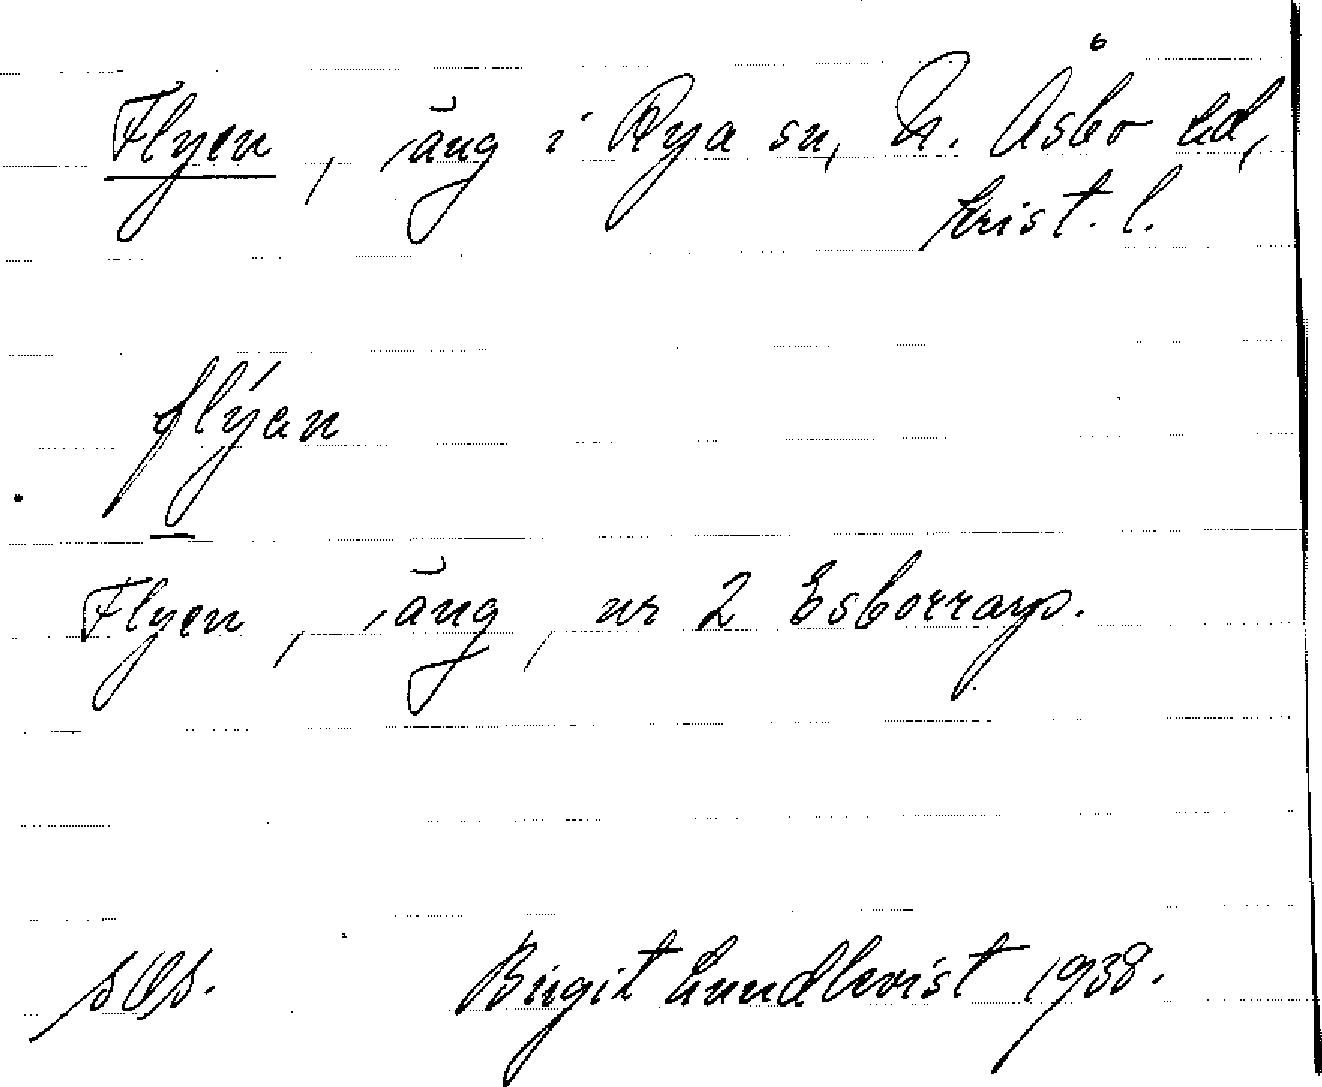 Flyen, äng i Rya sn, N. Åsbo hd,
Krist. l.
flýan
Flyen, äng, nr 2 Esborrarp.
sås. Birgit Lundkvist 1938.